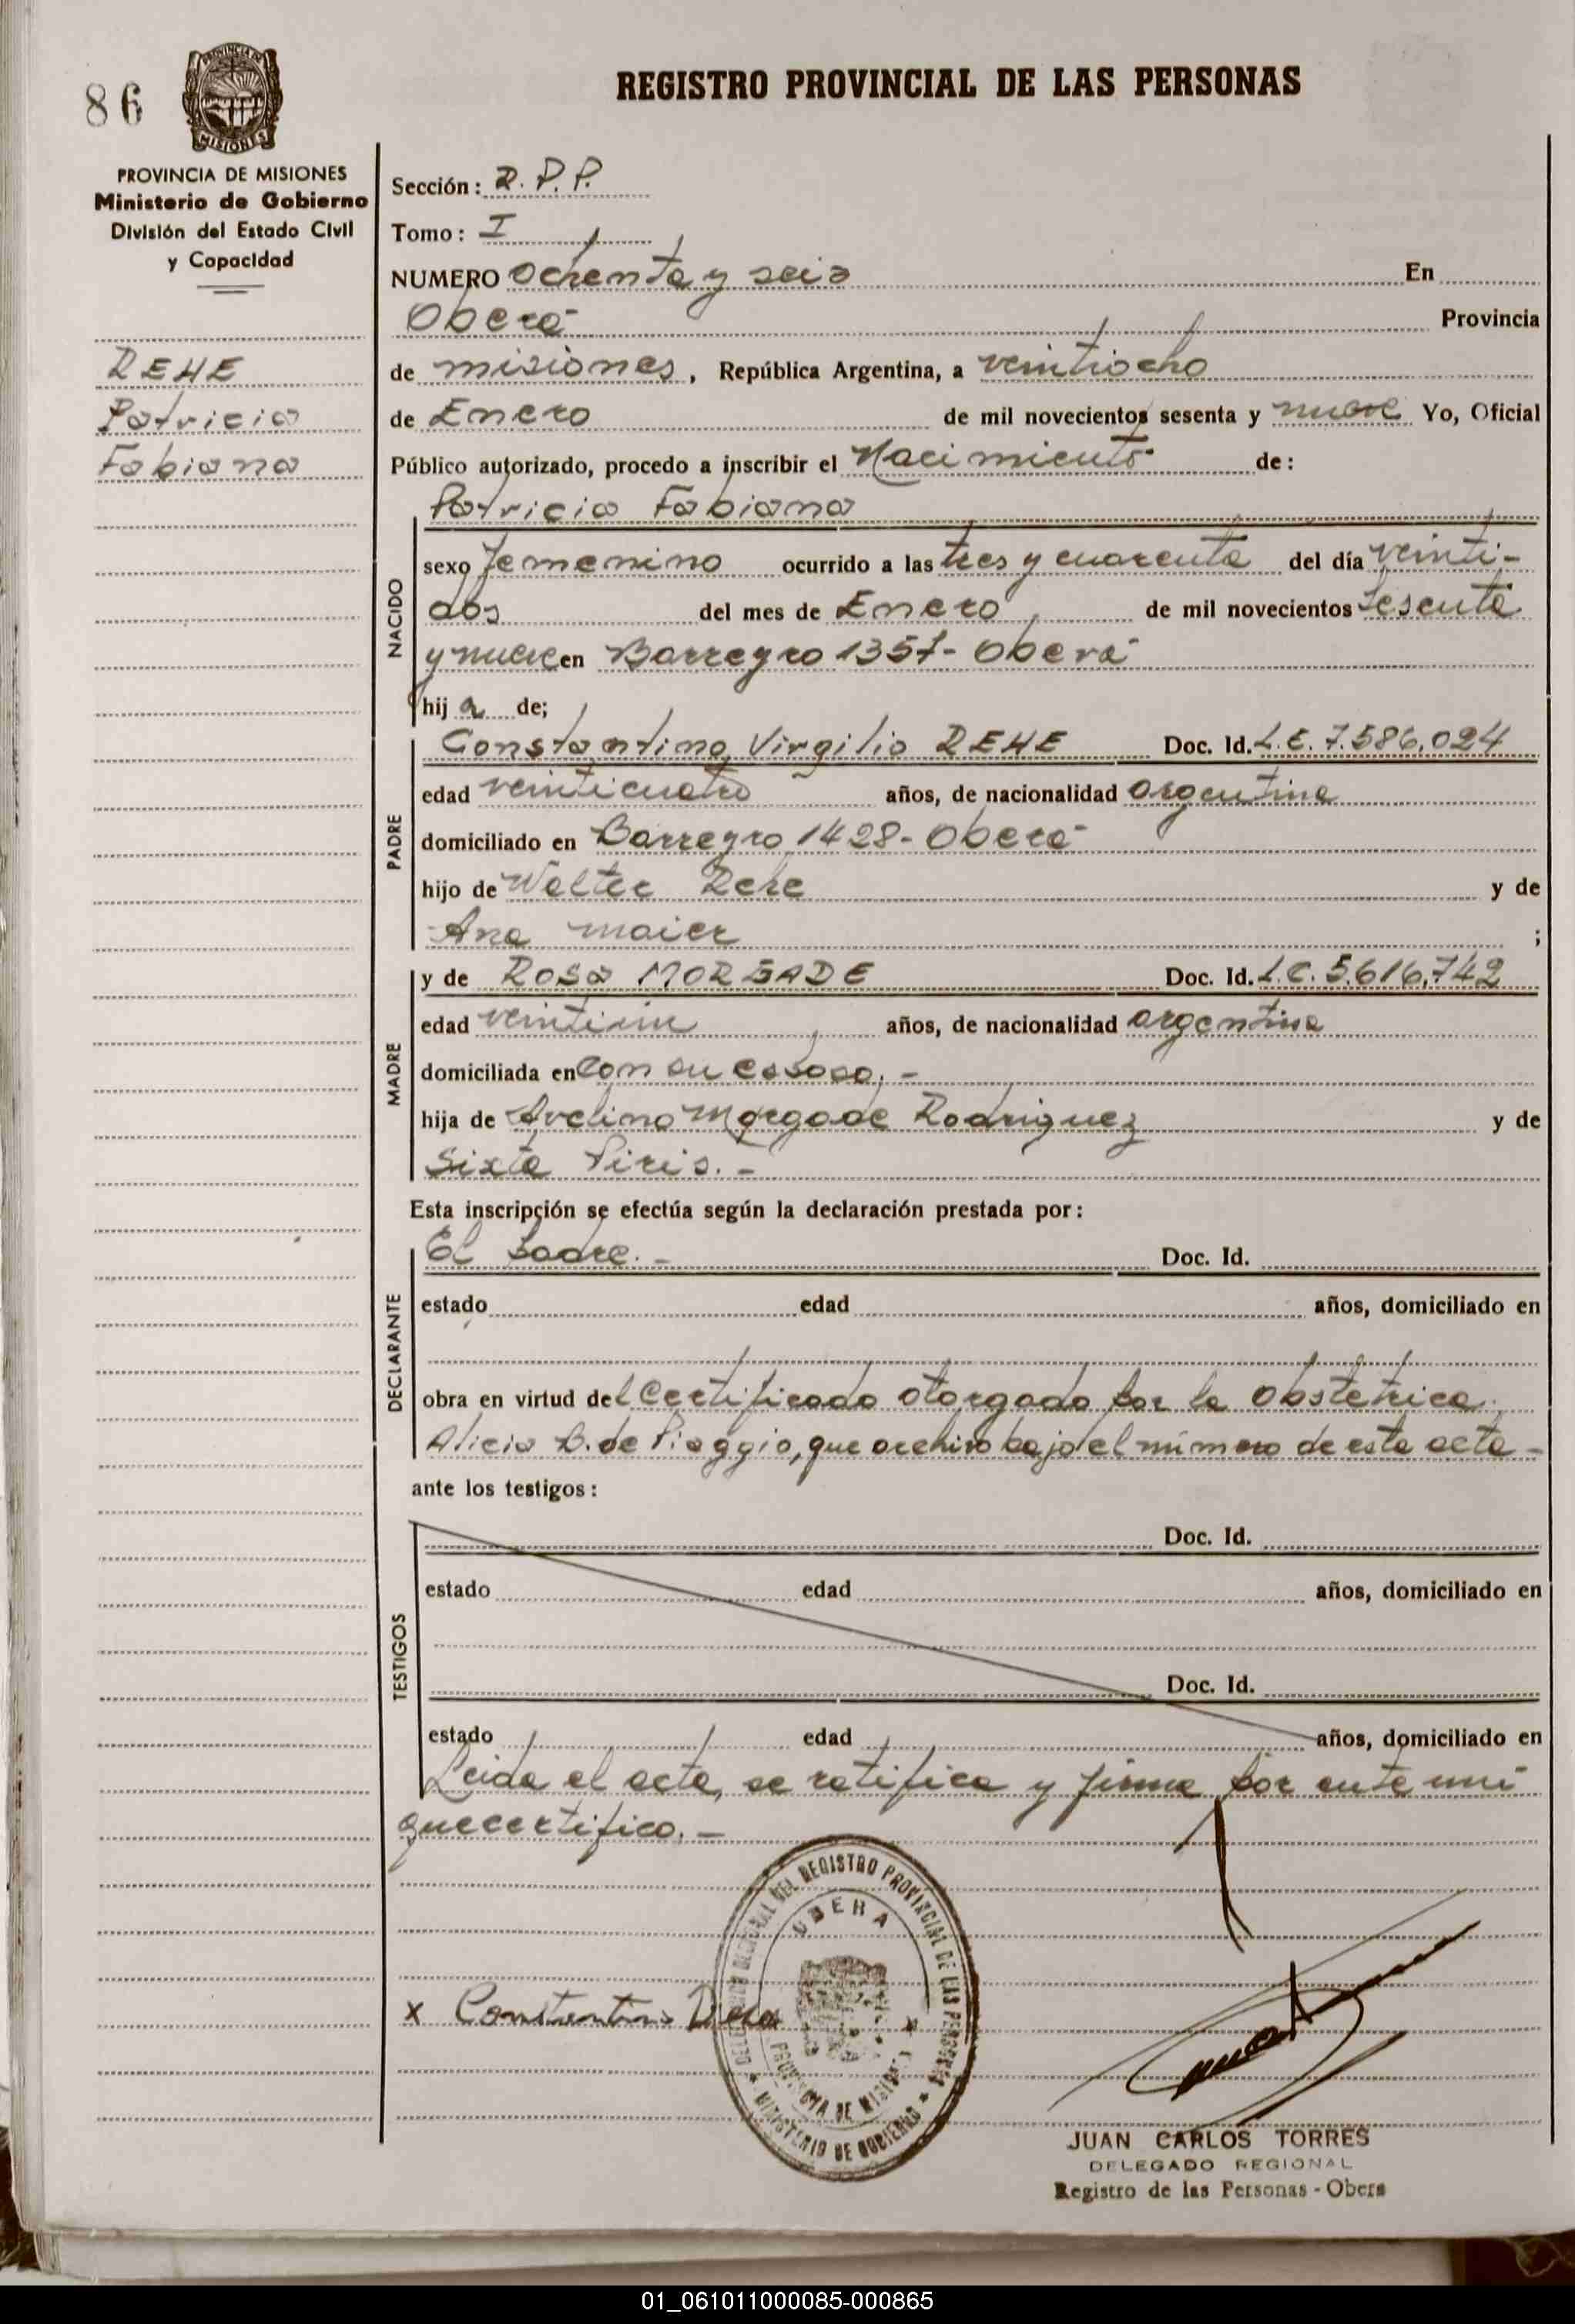 86
PROVINCIA DE MISIONES
Ministerio de Gobierno
División del Estado Civil
y Capacidad
DEHE
Patricia
Fabiana
REGISTRO PROVINCIAL DE LAS PERSONAS
Sección: R. P. P.
Tomo: I
NUMERO Ochenta y seis En
Oberá Provincia
de misiones, República Argentina, a veintiocho
de Enero de mil novecientos sesenta y nueve Yo, Oficial
Público autorizado, procedo a inscribir el Nacimiento de:
Patricia Fabiana
NACIDO
sexo femenino ocurrido a las tres y cuarenta del día veinti-
dos del mes de Enero de mil novecientos sesenta
y nueve en Barreyro 1357- Oberá
hij a de;
PADRE
Constantino Virgilio DEHE Doc. Id. L.E. 7.586.024
edad veinticuatro años, de nacionalidad argentina
domiciliado en Barreyro 1428- Oberá
hijo de Walter Dehe y de
Ana Maier ;
MADRE
y de ROSA MORGADE Doc. Id. L.C. 5.616.742
edad veintiun años, de nacionalidad argentina
domiciliada en Con su esposo.-
hija de Avelino Morgade Rodriguez y de
Sixta Piris.-
Esta inscripción se efectúa según la declaración prestada por:
DECLARANTE
El padre.- Doc. Id.
estado edad años, domiciliado en
obra en virtud del Certificado otorgado por la Obstetrica
Alicia B. de Piaggio, que archivo bajo el número de esta acta-
ante los testigos:
TESTIGOS
Doc. Id.
estado edad años, domiciliado en
Doc. Id.
estado edad años, domiciliado en
Leida el acta, se ratifica y firma por ante mi
que certifico.-
REGISTRO PROVINCIAL DE LAS PERSONAS
OBERA
PROVINCIA DE MISIONES
MINISTERIO DE GOBIERNO
x Constantino Dehe
JUAN CARLOS TORRES
DELEGADO REGIONAL
Registro de las Personas - Obera
01_061011000085-000865